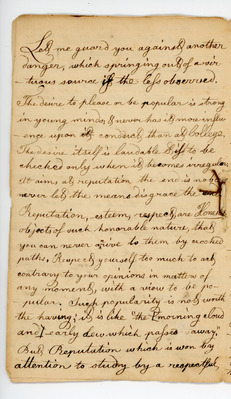 Let me guard you against another
danger, which springing out of a vir-
tuous source is the less observed.
The desire to please or be popular is strong
in young minds, & never has it more influ-
ence upon its conduct than at College.
The desire itself is laudable & is to be
checked only when it becomes irregular.
It aims at reputation the end is noble
never let the means disgrace the end
Reputation, esteem, respect, are
objects of such honorable nature, that
you can never rive to them by crooked
paths. Respect yourself too much to act
contrary to your opinions in matters of
any moment, with a view to be po-
pular. Such popularity is not worth
the having; it is like "the morning cloud
and early dew which passes away."
But Reputation which is won by
attention to study by a respectful,